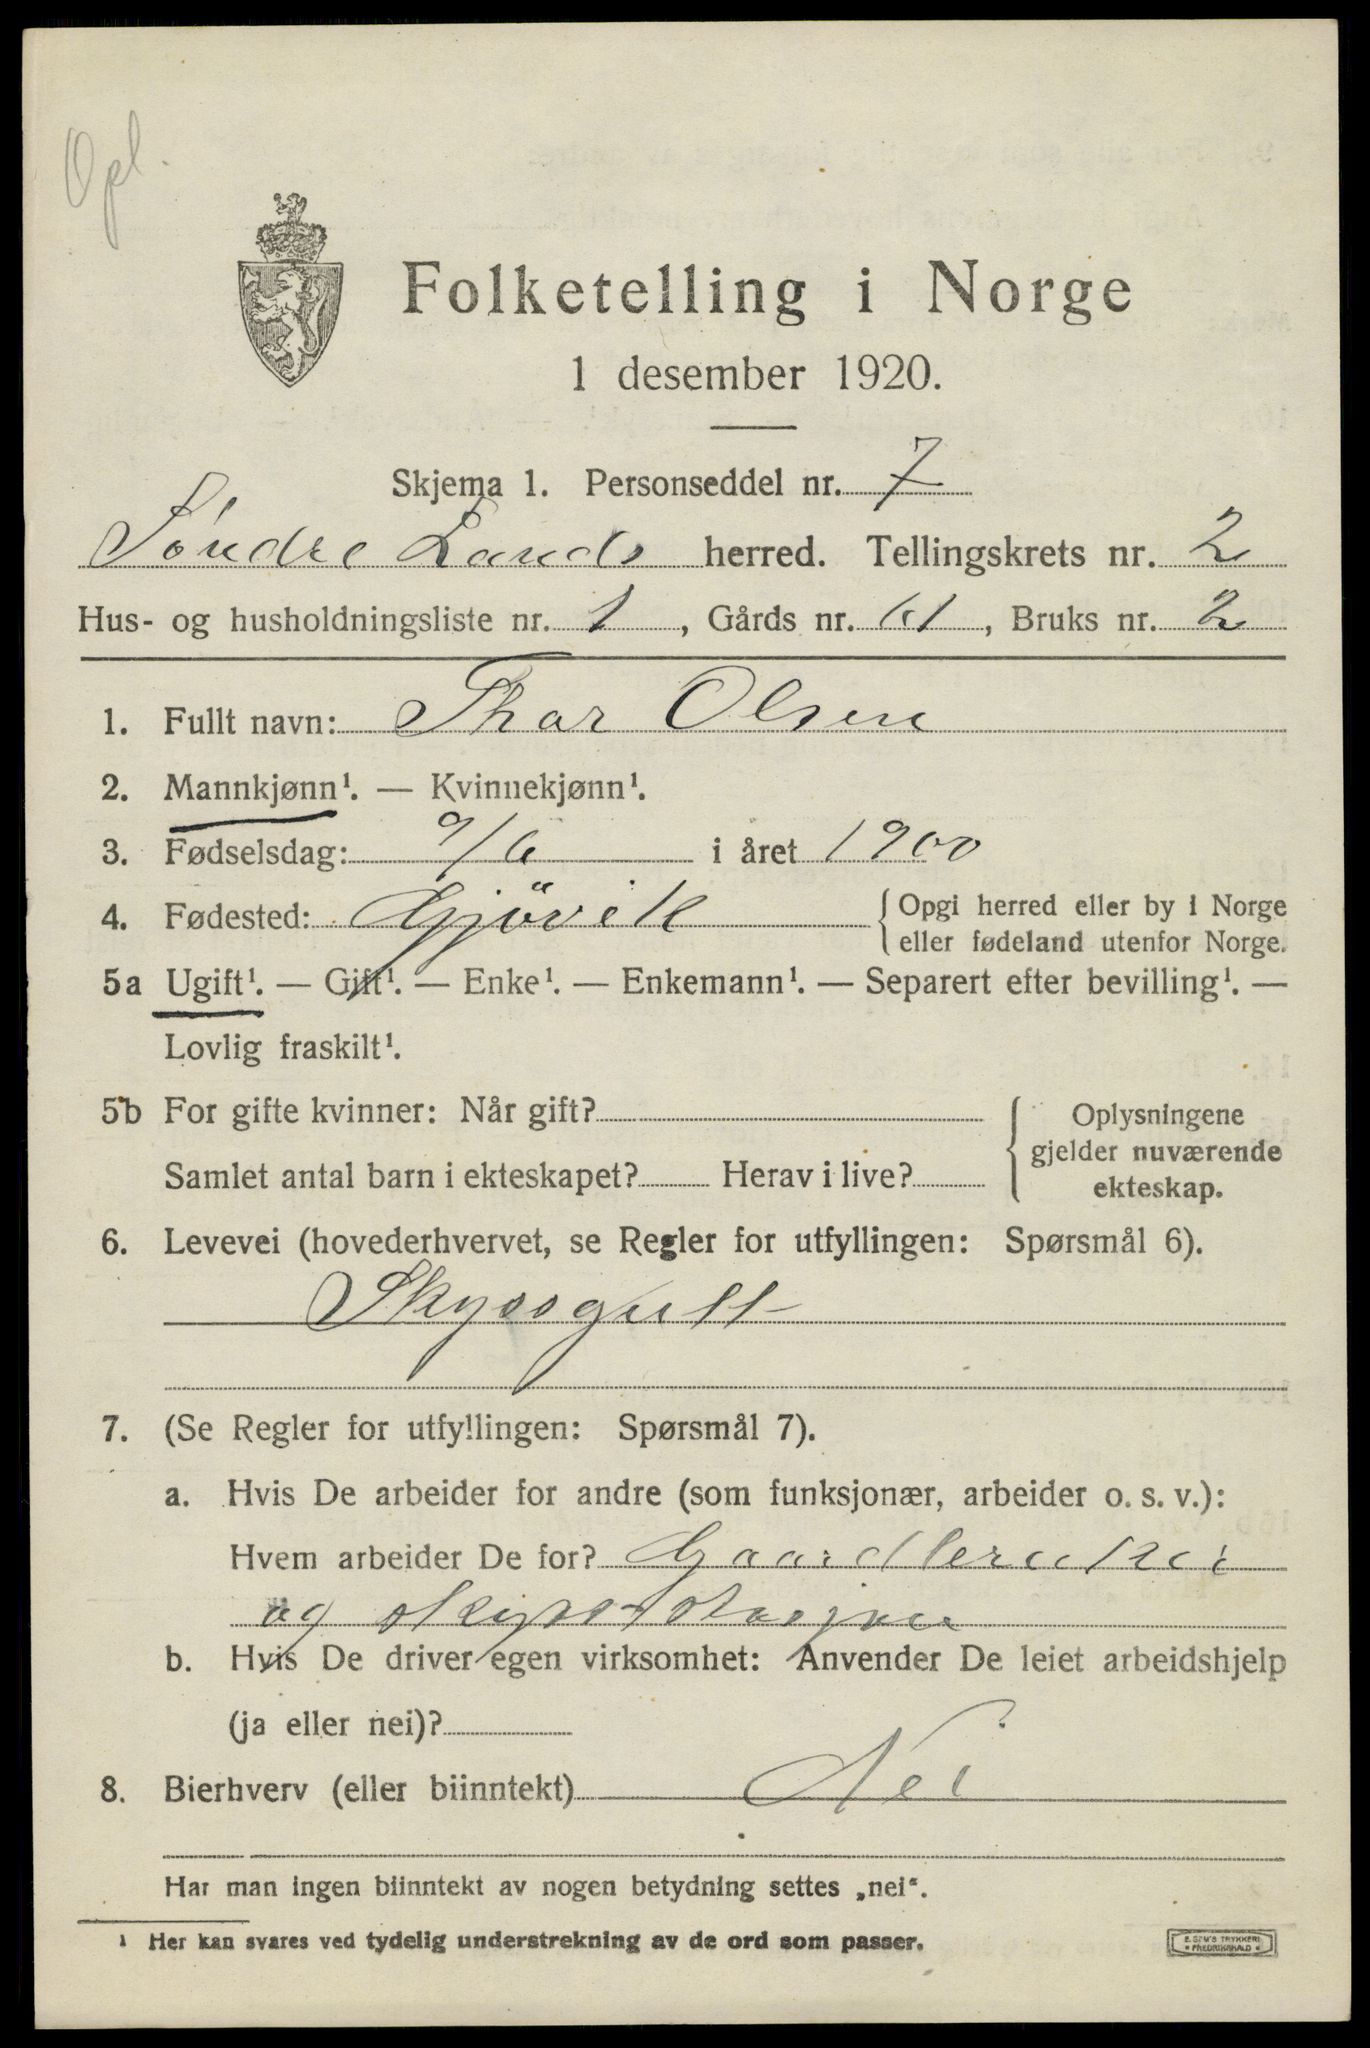 Opl.
Folketelling i Norge
1 desember 1920.
Skjema 1. Personseddel nr. 7
Søndre Lands herred. Tellingskrets nr. 2
Hus- og husholdningsliste nr. 1, Gårds nr. 61, Bruks nr. 2
1. Fullt navn: Thor Olsen
2. Mannkjønn¹. — Kvinnekjønn¹.
3. Fødselsdag: 9/6 i året 1900
4. Fødested: Gjövik { Opgi herred eller by i Norge
eller fødeland utenfor Norge.
5a Ugift¹. — Gift¹. — Enke¹. — Enkemann¹. — Separert efter bevilling¹. —
Lovlig fraskilt¹.
5b For gifte kvinner: Når gift? { Oplysningene
gjelder nuværende
ekteskap.
Samlet antal barn i ekteskapet? Herav i live?
6. Levevei (hovederhvervet, se Regler for utfyllingen: Spørsmål 6).
Skyssgutt
7. (Se Regler for utfyllingen: Spørsmål 7).
a. Hvis De arbeider for andre (som funksjonær, arbeider o. s. v.):
Hvem arbeider De for?
og skyss-stasjon
b. Hvis De driver egen virksomhet: Anvender De leiet arbeidshjelp
(ja eller nei)?
8. Bierhverv (eller biinntekt) Nei
Har man ingen biinntekt av nogen betydning settes „nei“.
¹ Her kan svares ved tydelig understrekning av de ord som passer.
E. SEM'S TRYKKERI
• FREDRIKSHALD •